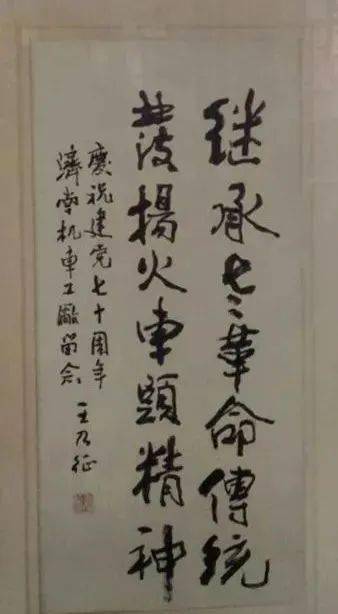 继承二七革命傳統
發揚火車頭精神
慶祝建党七十周年
濟南机車工廠留念 王乃征